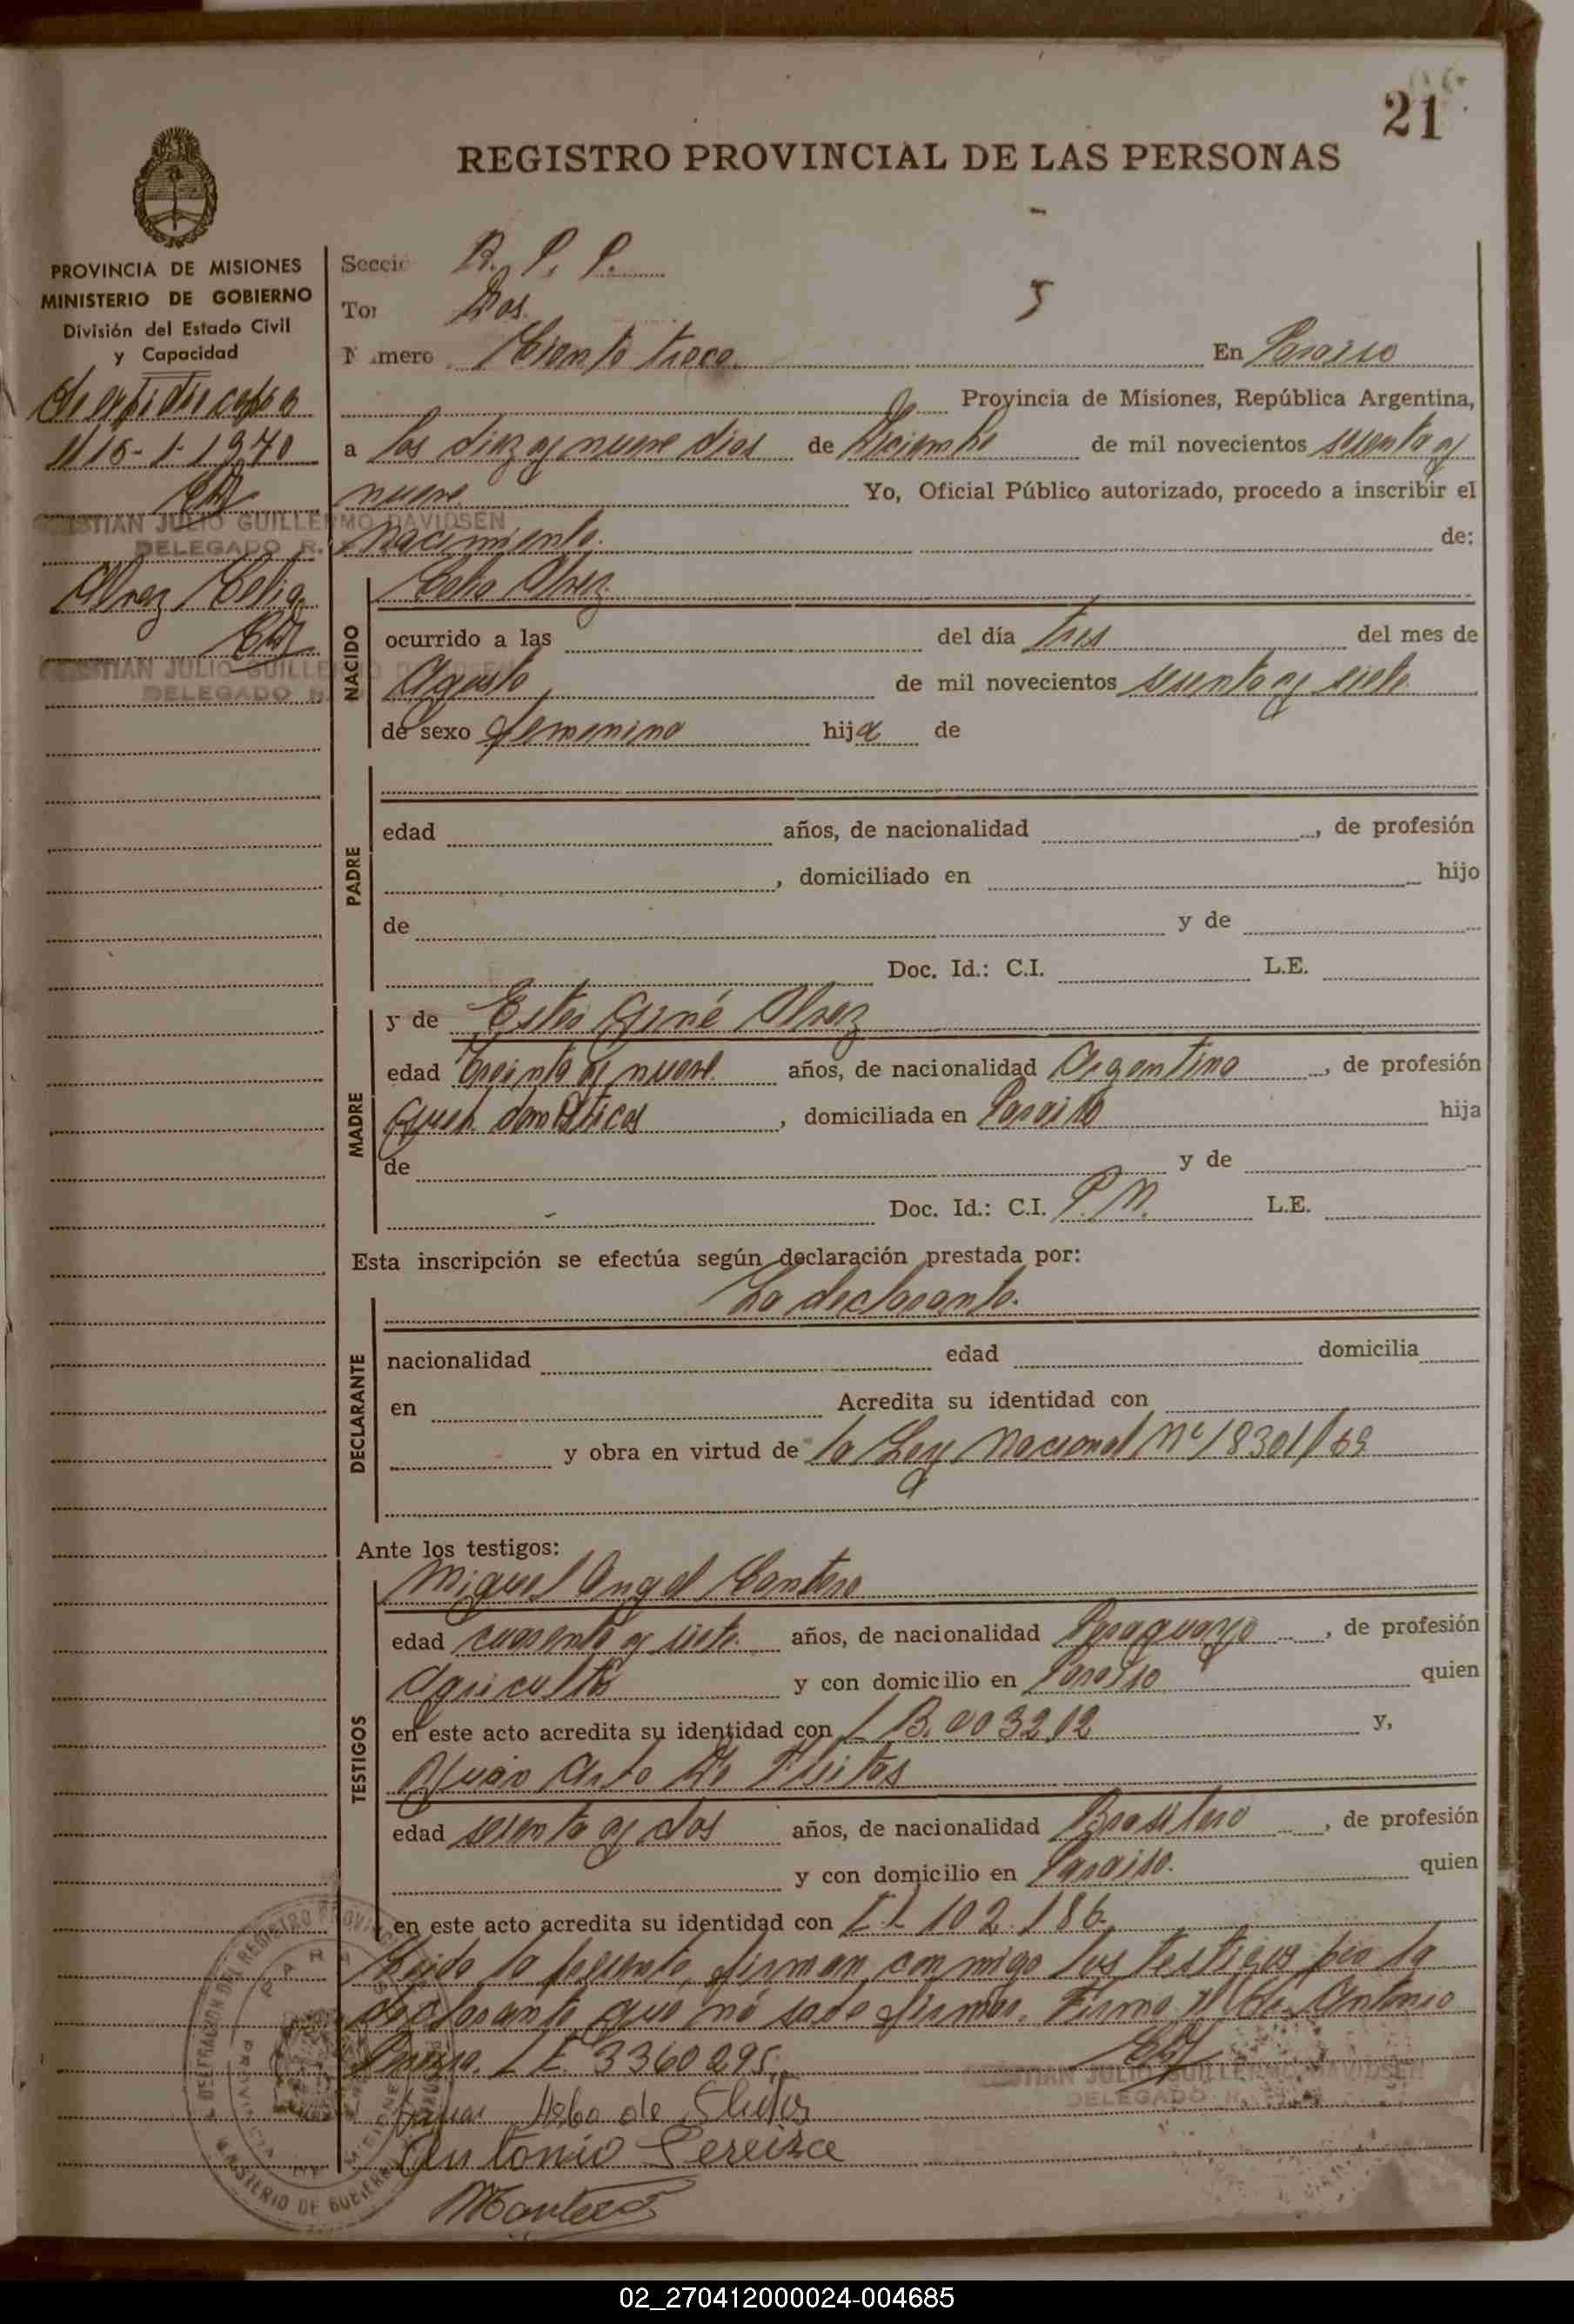 21
REGISTRO PROVINCIAL DE LAS PERSONAS
PROVINCIA DE MISIONES
MINISTERIO DE GOBIERNO
División del Estado Civil
y Capacidad
15-1-1970
CRISTIAN JULIO GUILLERMO DAVIDSEN
DELEGADO R.
Alvez Celia
CRISTIAN JULIO GUILLERMO DAVIDSEN
DELEGADO R.
Secció R. P. P.
To Dos.
5
Número Ciento trece. En Paraiso
Provincia de Misiones, República Argentina,
a los diez y nueve dias de Diciembre de mil novecientos sesenta y
nueve Yo, Oficial Público autorizado, procedo a inscribir el
Nacimiento. de:
NACIDO
Celia Alvez.
ocurrido a las del día tres del mes de
Agosto, de mil novecientos sesenta y siete
de sexo femenino hija de
PADRE
edad años, de nacionalidad , de profesión
, domiciliado en hijo
de y de
Doc. Id.: C.I. L.E.
MADRE
y de Alvez
edad treinta y nueve años, de nacionalidad Argentina, de profesión
Queh. domésticos, domiciliada en Paraiso hija
de y de
Doc. Id.: C.I. L.E.
Esta inscripción se efectúa según declaración prestada por:
DECLARANTE
La declarante.
nacionalidad edad domicilia
en Acredita su identidad con
y obra en virtud de la Ley Nacional Nº 18301/69
Ante los testigos:
TESTIGOS
Miguel Angel
edad cuarenta y siete años, de nacionalidad Paraguayo, de profesión
Agricultor y con domicilio en Paraiso quien
en este acto acredita su identidad con 003202 y,
Juan
edad sesenta y dos años, de nacionalidad Brasilero, de profesión
y con domicilio en Paraiso. quien
en este acto acredita su identidad con 102.186
Leida la presente, firman conmigo los testigos por la
declarante que nó sabe firmar. Firma el Antonio
L.E. 3360295.
CRISTIAN JULIO GUILLERMO DAVIDSEN
DELEGADO R.
de
Antonio Pereira
02_270412000024-004685